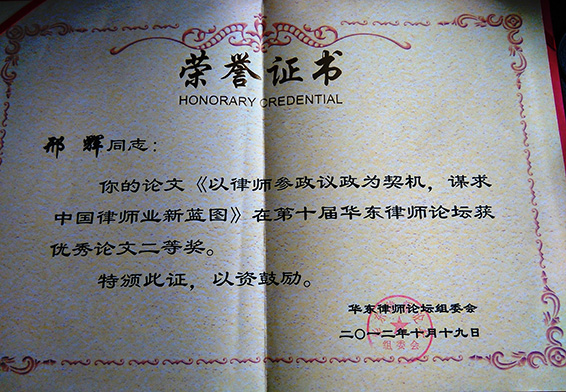 荣誉证书
HONORARY CREDENTIAL
邢辉同志：
你的论文《以律师参政议政为契机，谋求
中国律师业新蓝图》在第十届华东律师论坛获
优秀论文二等奖。
特颁此证，以资鼓励。
华东律师论坛组委会
二〇一二年十月十九日
组委会